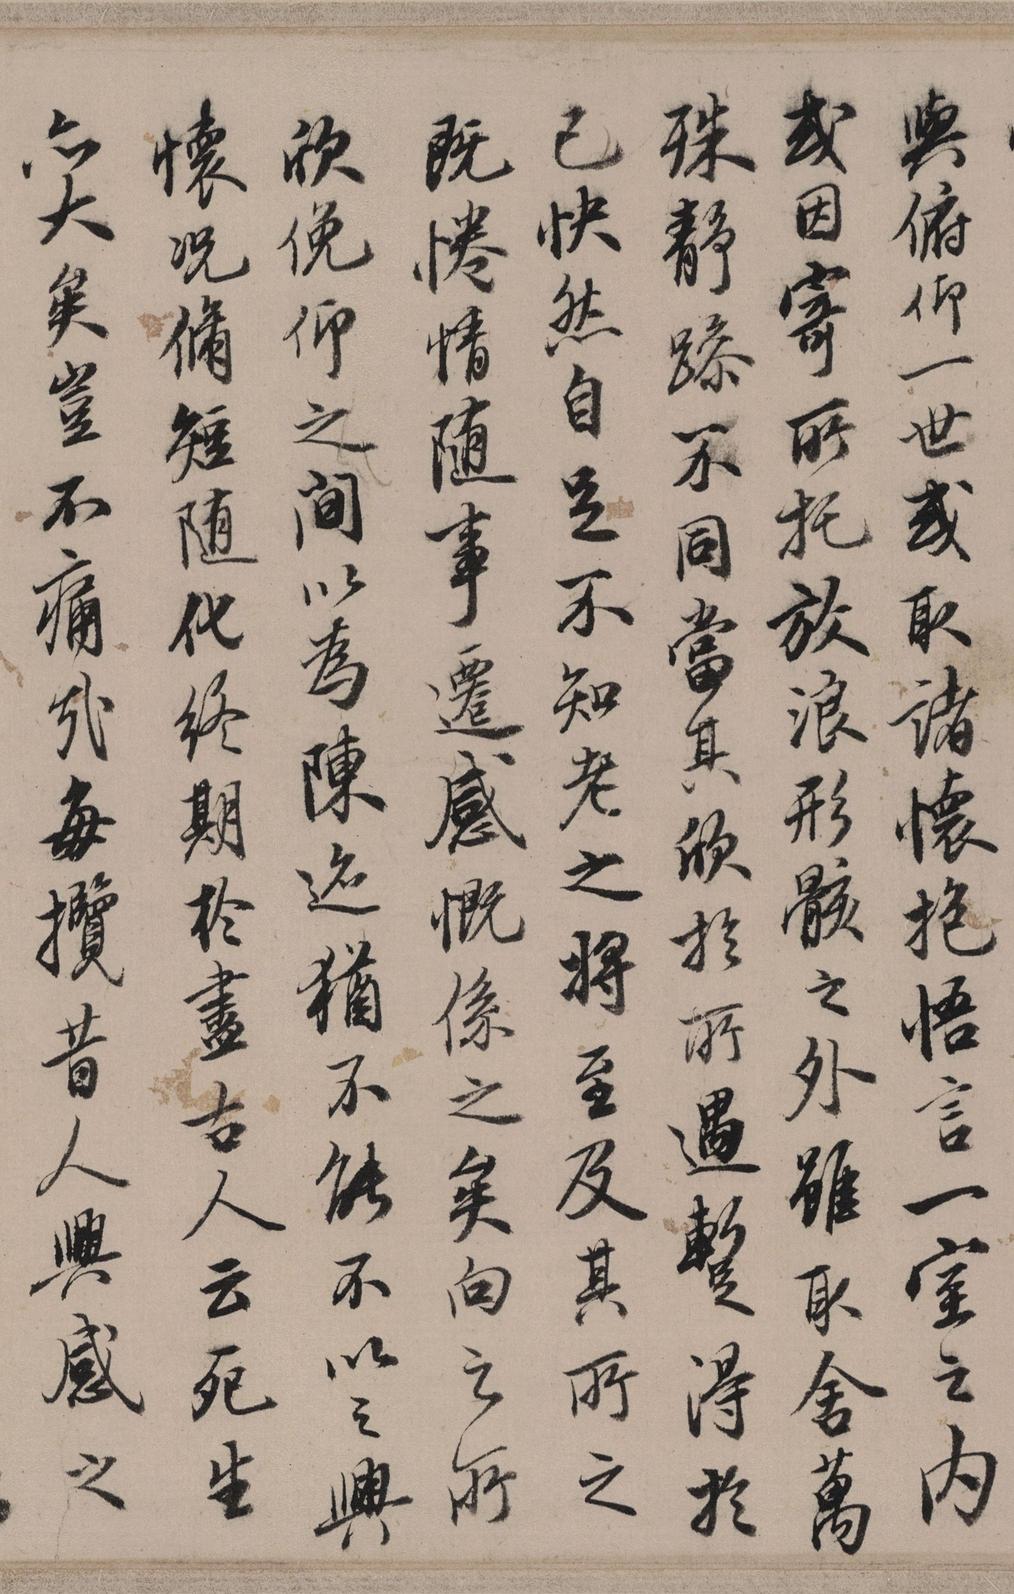 與俯仰一世或取諸懷抱悟言一室之内
或因寄所托放浪形骸之外雖取舍萬
殊靜躁不同當其欣於所遇蹔得於
己快然自足不知老之將至及其所之
既惓情随事遷感慨係之矣向之所
欣俛仰之間以為陳迹猶不能不以之興
懷況脩短随化終期於盡古人云死生
亦大矣豈不痛哉每攬昔人興感之